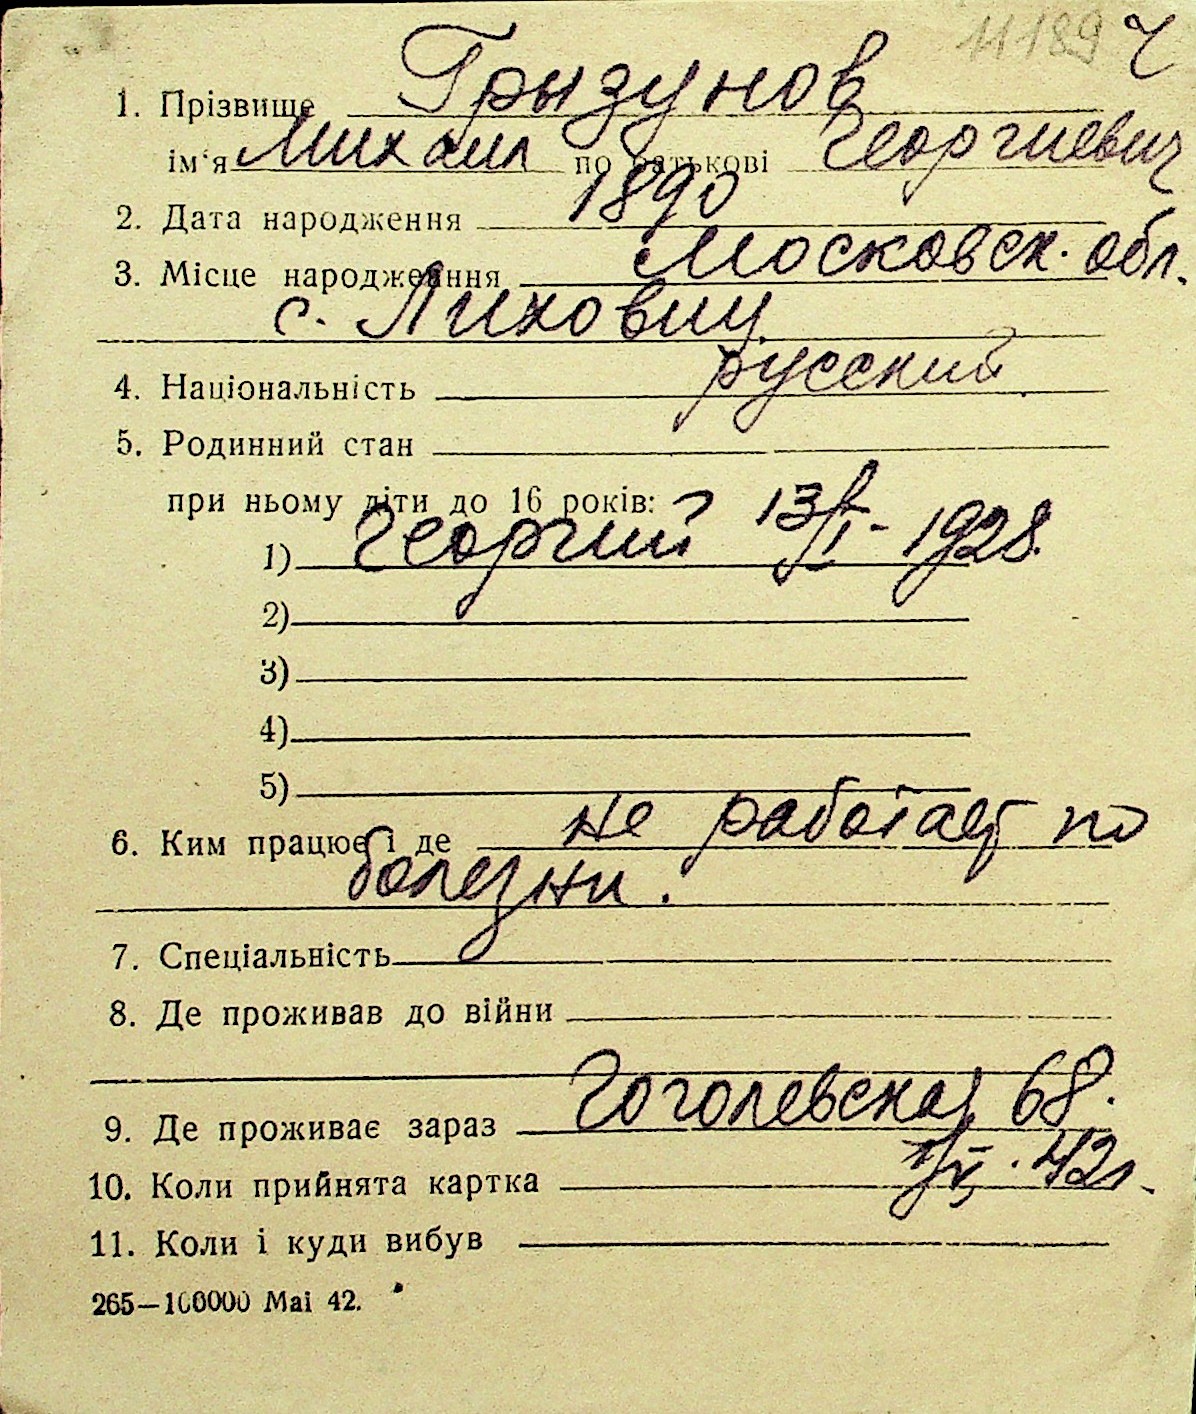 11189 ч
1. Прізвище Грызунов
ім'я Михаил по батькові Георгиевич
2. Дата народження 1890
3. Місце народження Московск. обл.
с. Лиховиц
4. Національність русский
5. Родинний стан
при ньому діти до 16 років:
1) Георгий 13/I - 1928.
2)
3)
4)
5)
6. Ким працює і де не работает по
болезни.
7. Спеціальність
8. Де проживав до війни
9. Де проживає зараз Гоголевская 68.
10. Коли прийнята картка 42г.
11. Коли і куди вибув
265—100000 Mai 42.